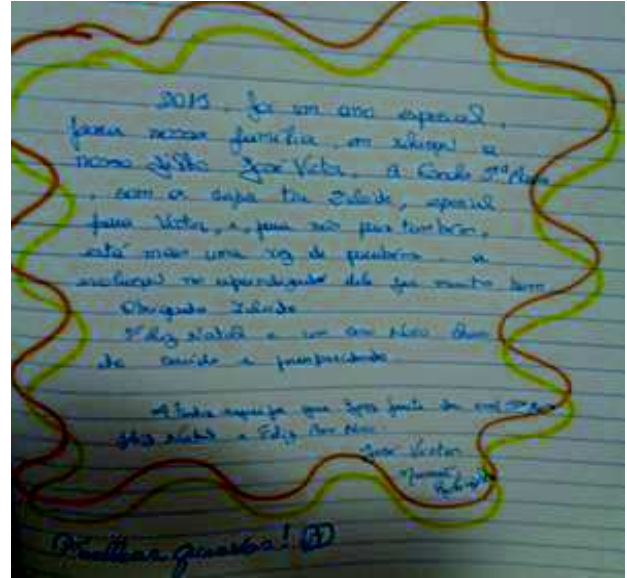 2015, foi um ano especial,
para nossa família, em relação a
nosso filho José Victor, a Escola
, com a sua tia Zuleide, especial
para Victor, e, para nós pais também,
está mais uma vez de parabéns. a
evolução no aprendizado dele foi muito bom
Obrigado Zuleide
Feliz Natal e um Ano Novo cheio
de saúde e prosperidade.
A toda equipe que fez parte da
feliz Natal e Feliz Ano Novo.
José Victor